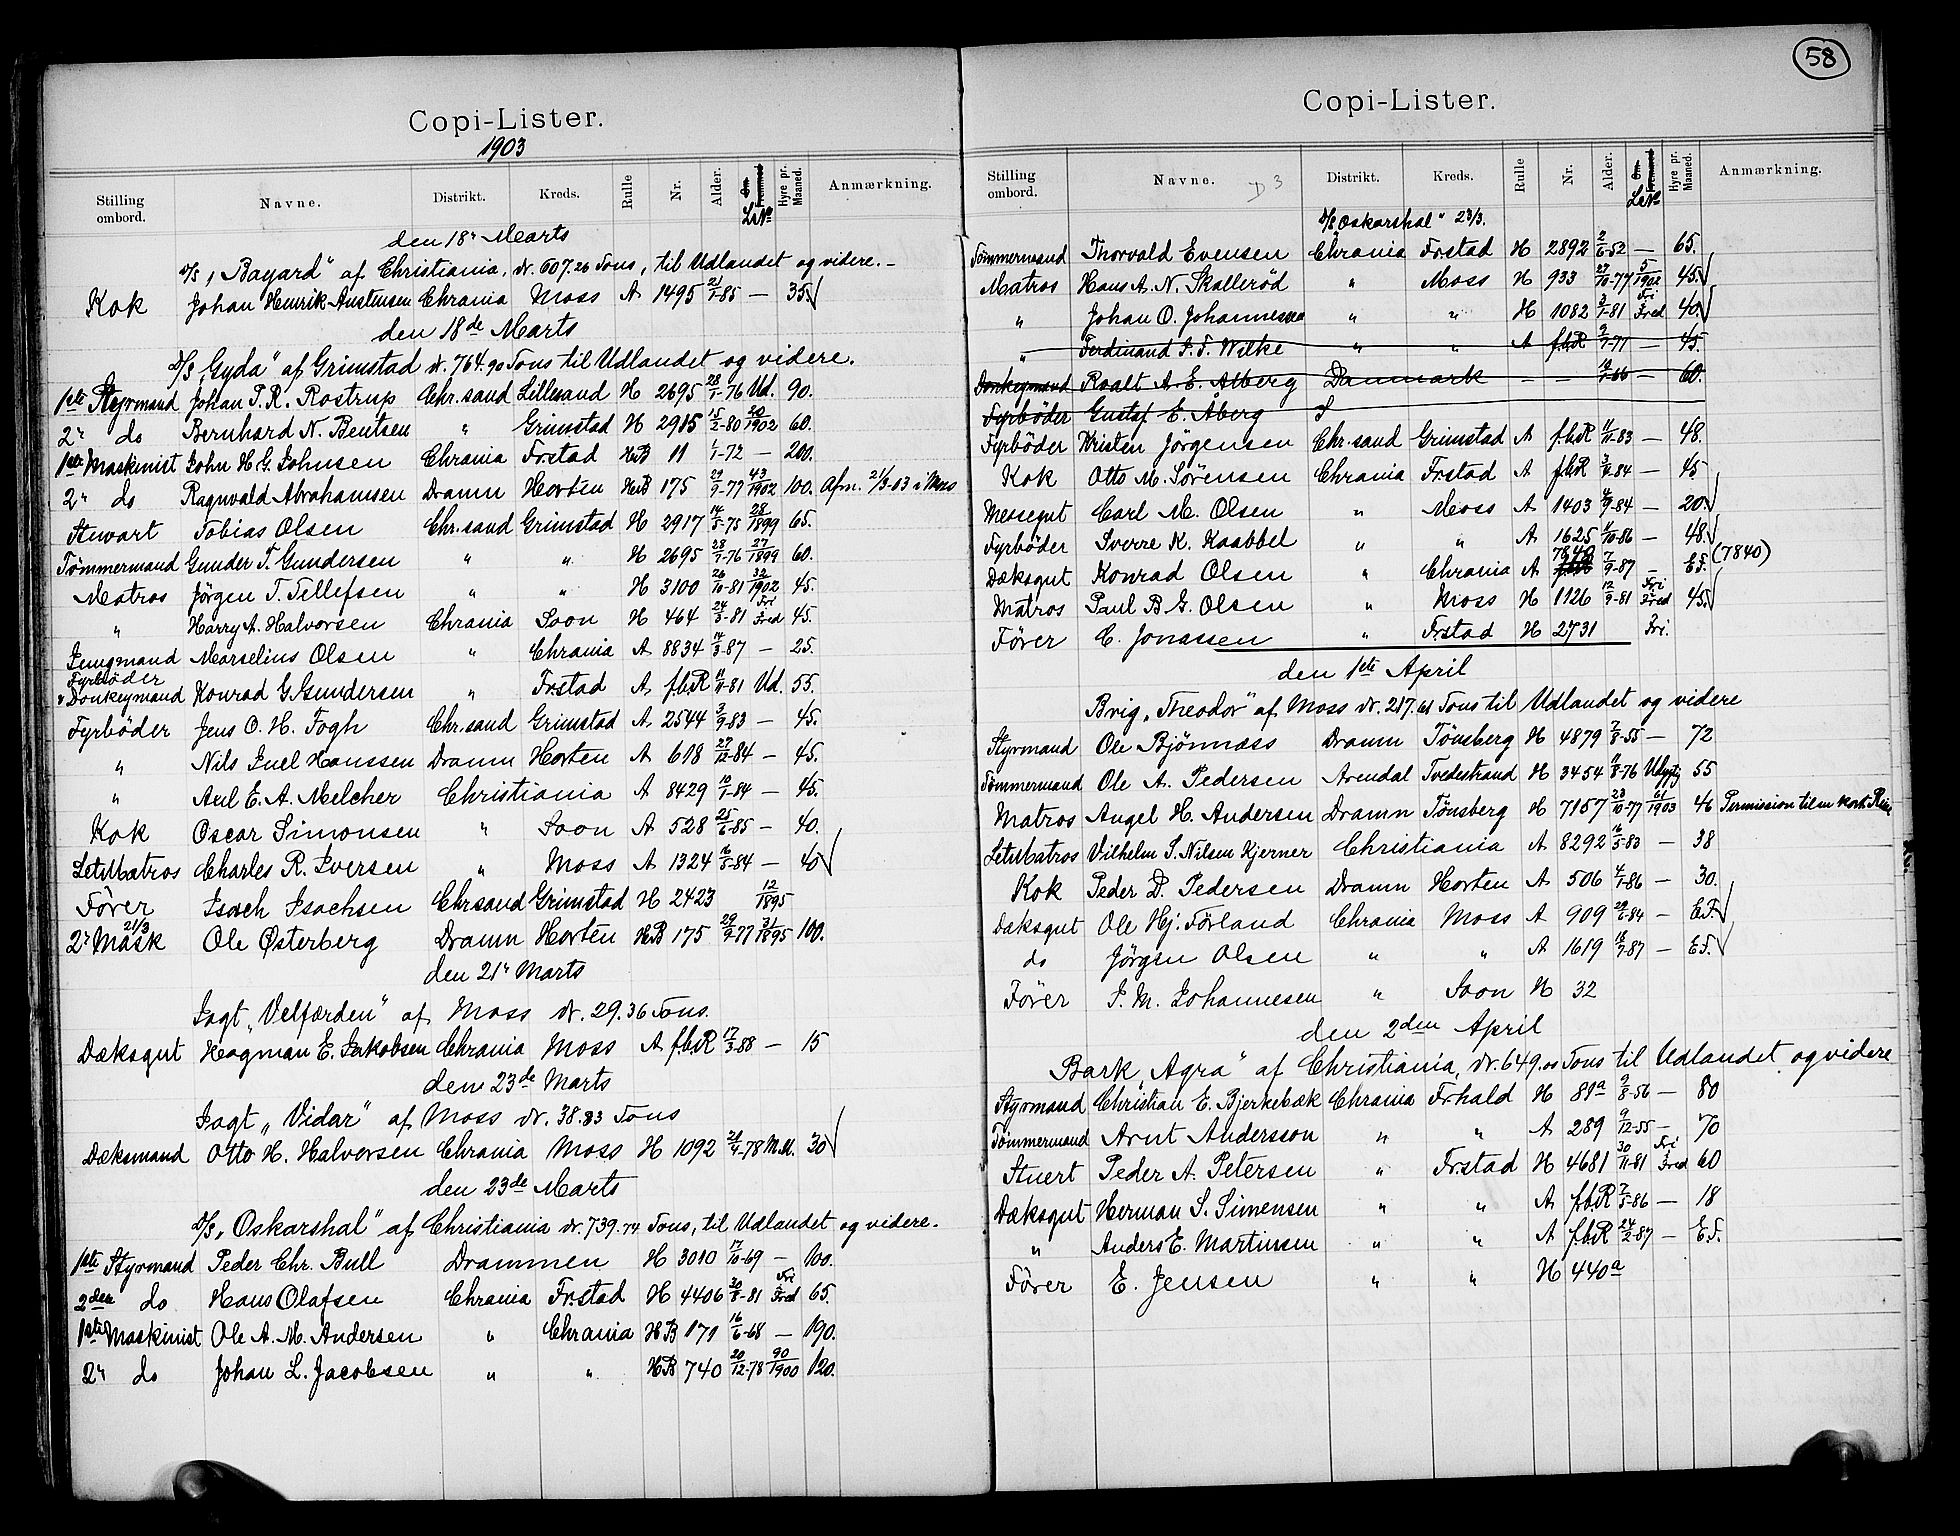 Copi-Lister.
1903
Stilling ombord. Navne. Distrikt. Kreds. Rulle Nr. Alder. Hyre pr. Maaned. Anmærkning.
LsNo
den 18 Marts
D/S „Bayard" af Christiania, dr. 607.26 Tons, til Udlandet og videre.
Kok Johan Henrik Austensen Chrania Moss A 1495 21/1-85 — 35.
den 18de Marts
D/S „Gyda" af Grimstad dr. 764.90 Tons til Udlandet og videre.
1ste Styrmand Johan P. R. Rostrup Chr.sand Lillesand H 2695 28/1-76 Ud. 90.
2" do Bernhard N. Bentsen " Grimstad H 2915 15/2-80 20/1902 60.
1ste Maskinist John H. G. Johnsen Chrania Fr.stad HB 11 1/1-72 — 200.
2" do Ragnvald Abrahamsen Dramn Horten HB 175 29/9-77 43/1902 100. Afm. 21/3-03 i Moss
Stuvart Tobias Olsen Chr.sand Grimstad H 2917 14/5-75 28/1899 65.
Tømmermand Gunder T. Gundersen " " H 2695 28/7-76 27/1899 60.
Matros Jörgen T. Tellefsen " " H 3100 26/10-81 32/1902 45.
" Harry A. Halvorsen Chrania Soon H 464 24/3-81 Fri Fred 45.
Jungmand Marselius Olsen " Chrania A 8834 14/3-87 — 25.
Fyrbøder
" Donkeymand Konrad G. Gundersen " Frstad A f.b.R 11/11-81 Ud. 55.
Fyrbøder Jens O. H. Fogh Chr.sand Grimstad A 2544 3/9-83 — 45.
" Nils Juel Hanssen Dramn Horten A 618 27/12-84 — 45.
" Axel E. A. Melcher Christiania A 8429 10/1-84 — 45.
Kok Oscar Simonsen " Soon A 528 25/6-85 — 40.
Letmatros Charles R. Iversen " Moss A 1324 16/5-84 — 40
Förer Isach Isachsen Chrsand Grimstad H 2423 12/1895
21/3
2" Mask Ole Østerberg Dramn Horten HB 175 29/9-77 31/1895 100.
den 21" Marts
Jagt „Velfærden" af Moss dr. 29.36 Tons.
Dæksgut Hagman E. Jakobsen Chrania Moss A f.b.R 17/3-88 — 15
den 23de Marts
Jagt „Vidar" af Moss dr. 38.83 Tons
Dæksmand Otto H. Halvorsen Chrania Moss H 1092 21/4-78 M.M. 30
den 23de Marts
D/S „Oskarshal" af Christiania dr. 739.74 Tons, til Udlandet og videre.
1ste Styrmand Peder Chr. Bull Drammen H 3010 17/10-69 — 100.
2den do Hans Olafsen Chrania Fr.stad H 4406 30/8-81 Fri Fred 65.
1ste Maskinist Ole A. M. Andersen " Chrania HB 171 16/6-68 — 190.
2" do Johan L. Jacobsen " " HB 740 20/12-78 90/1900 120.
58
Copi-Lister.
Stilling ombord. Navne. Distrikt. Kreds. Rulle Nr. Alder. Hyre pr. Maaned. Anmærkning.
LsNo
D/S Oskarshal" 23/3.
Tømmermand Thorvald Evensen Chrania Frstad H 2892 2/6-52 — 65.
Matros Hans A. N. Skallerød " Moss H 933 27/10-77 5/1902 45.
" Johan O. Johannessen " " H 1082 3/1-81 Fri Fred 40.
" Ferdinand J. F. Wilke " " A f.b.R 2/7-77 — 45.
Donkeymand Roalt A. E. Alberg Danmark — — 12/1-66 — 60.
Fyrbøder Gustaf E. Åberg S
Fyrbøder Kristen Jörgensen Chr.sand Grimstad A f.b.R 11/11-83 — 48.
Kok Otto M. Sörensen Chrania Frstad A f.b.R 3/9-84 — 45
Messegut Carl M. Olsen " Moss A 1403 4/9-84 — 20.
Fyrbøder Sverre K. Kaabbel " " A 1625 11/10-86 — 48.
Dæksgut Konrad Olsen " Chrania A 7840 7/9-87 — E.F. (7840)
Matros Paul B. G. Olsen " Moss H 1126 12/9-81 Fri Fred 45.
Förer C. Jonassen " Frstad H 2731 Fri.
den 1ste April
Brig „Theodor" af Moss dr. 217.61 Tons til Udlandet og videre
Styrmand Ole Björnnæss Dramn Tönsberg H 4879 7/8-55 — 72
Tømmermand Ole A. Pedersen Arendal Tvedestrand H 3454 11/8-76 Udygtig 55
Matros Angel H. Andersen Dramn Tönsberg H 7157 23/10-77 61/1903 46 Permission til en kort Reise
Letmatros Vilhelm S. Nilsen Kjerner Christiania A 8292 16/5-83 — 38
Kok Peder D. Pedersen Dramn Horten A 506 4/1-86 — 30.
Dæksgut Ole Hj. Førland Chrania Moss A 909 29/6-84 — E.F.
do Jörgen Olsen " " A 1619 18/7-87 — E.F.
Förer J. M. Johannesen " Soon H 32
den 2den April
Bark „Agra" af Christiania, dr. 649.00 Tons til Udlandet og videre
Styrmand Christian E. Bjerkebæk Chrania Frhald H 81a 9/8-56 — 80
Tømmermand Arnt Andersson " " A 289 9/12-55 — 70
Stuert Peder A. Petersen " Frstad H 4681 30/11-81 Fri Fred 60
Dæksgut Herman S. Simensen " " A f.b.R 7/5-86 — 18
" Anders E. Martinsen " " A f.b.R 24/2-87 — E.F.
Förer E. Jensen " " H 440a